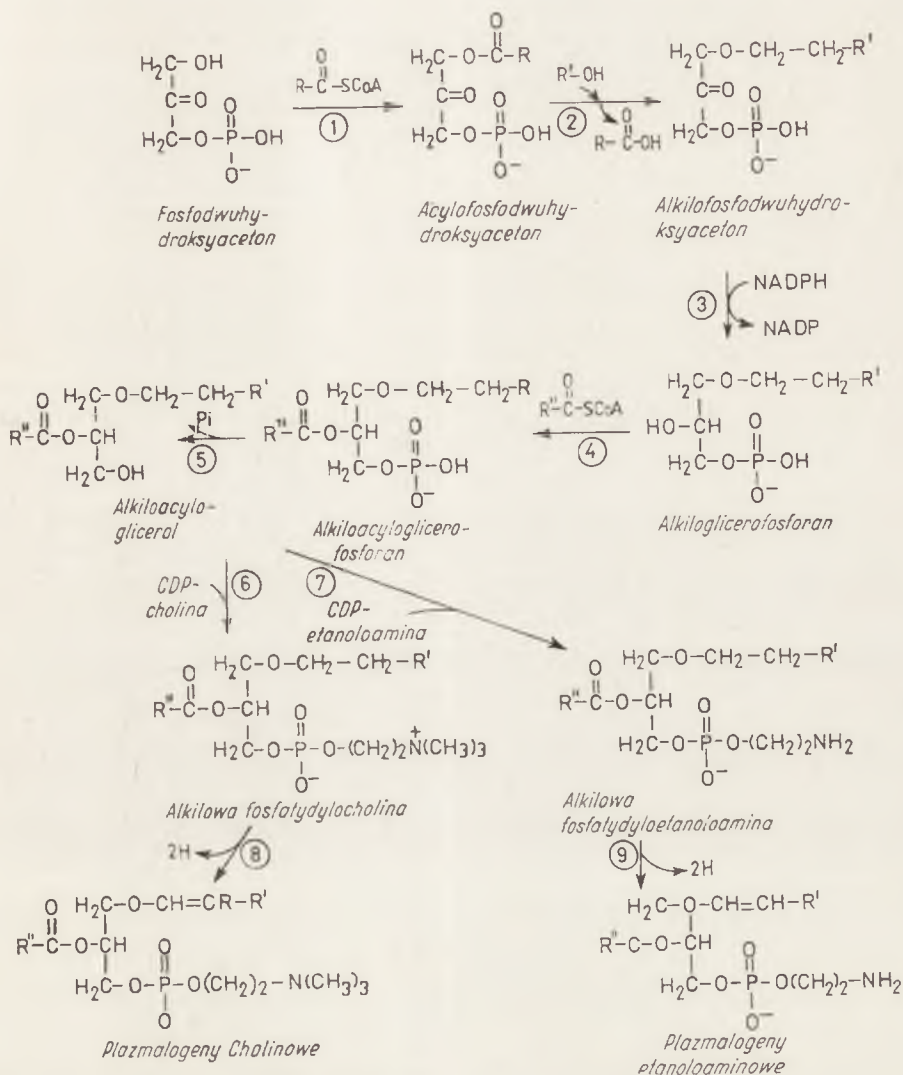 O
H₂C–OH
C=O O
H₂C–O–P–OH
O⁻
Fosfodwuhy-
droksyaceton
O
R–C–SCoA
1
O
H₂C–O–C–R
C=O O
H₂C–O–P–OH
O⁻
Acylofosfodwuhy-
droksyaceton
R'–OH
2
O
R–C–OH
H₂C–O–CH₂–CH₂–R'
C=O O
H₂C–O–P–OH
O⁻
Alkilofosfodwuhydro-
ksyaceton
3
NADPH
NADP
H₂C–O–CH₂–CH₂–R'
HO–CH O
H₂C–O–P–OH
O⁻
Alkiloglicerofosforan
O
R"–C–SCoA
4
H₂C–O–CH₂–CH₂–R
O
R"–C–O–CH O
H₂C–O–P–OH
O⁻
Alkiloacyloglicero-
fosforan
Pi
5
H₂C–O–CH₂–CH₂–R'
O
R"–C–O–CH
H₂C–OH
Alkiloacylo-
glicerol
CDP-
cholina
6
7
CDP-
etanoloamina
H₂C–O–CH₂–CH₂–R'
O
R"–C–O–CH O
H₂C–O–P–O–(CH₂)₂N⁺(CH₃)₃
O⁻
Alkilowa fosfatydylocholina
H₂C–O–CH₂–CH₂–R'
O
R"–C–O–CH O
H₂C–O–P–O–(CH₂)₂NH₂
O⁻
Alkilowa
fosfatydyloetanoloamina
2H
8
9
2H
H₂C–O–CH=CR–R'
O
R"–C–O–CH O
H₂C–O–P–O(CH₂)₂–N(CH₃)₃
O
Plazmalogeny Cholinowe
H₂C–O–CH=CH–R'
R"–C–O–CH O
H₂C–O–P–O(CH₂)₂–NH₂
O⁻
Plazmalogeny
etanoloaminowe